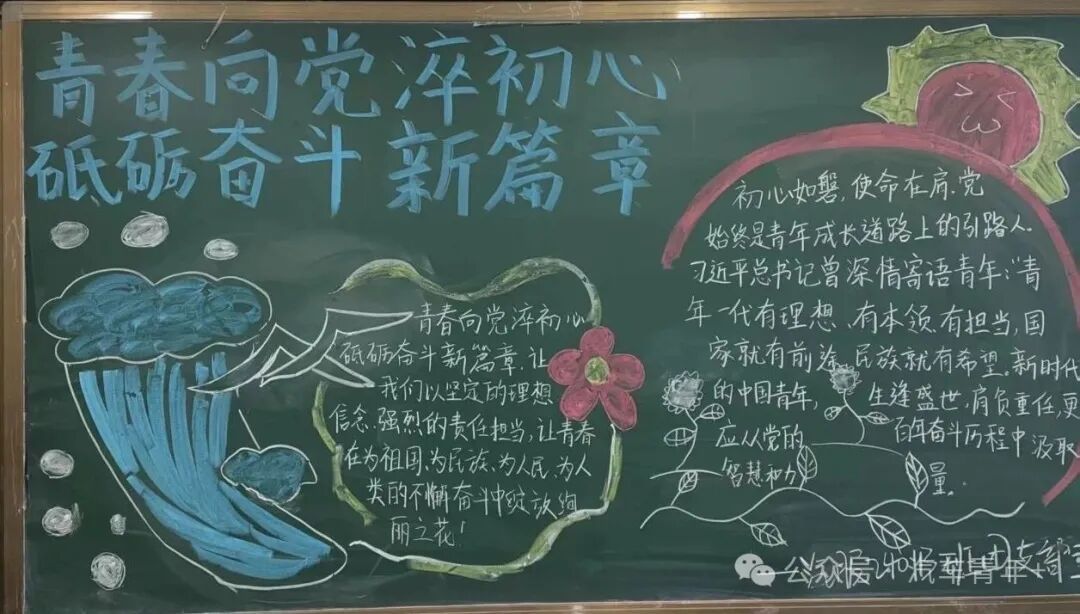 青春向党淬初心
砥砺奋斗新篇章
青春向党淬初心
砥砺奋斗新篇章,让
我们以坚定的理想
信念、强烈的责任担当,让青春
在为祖国、为民族、为人民、为人
类的不懈奋斗中绽放绚
丽之花!
初心如磐,使命在肩,党
始终是青年成长道路上的引路人。
习近平总书记曾深情寄语青年:“青
年一代有理想、有本领、有担当,国
家就有前途,民族就有希望。新时代
的中国青年,生逢盛世,肩负重任,更
应从党的百年奋斗历程中汲取
智慧和力量。
公众号
青年